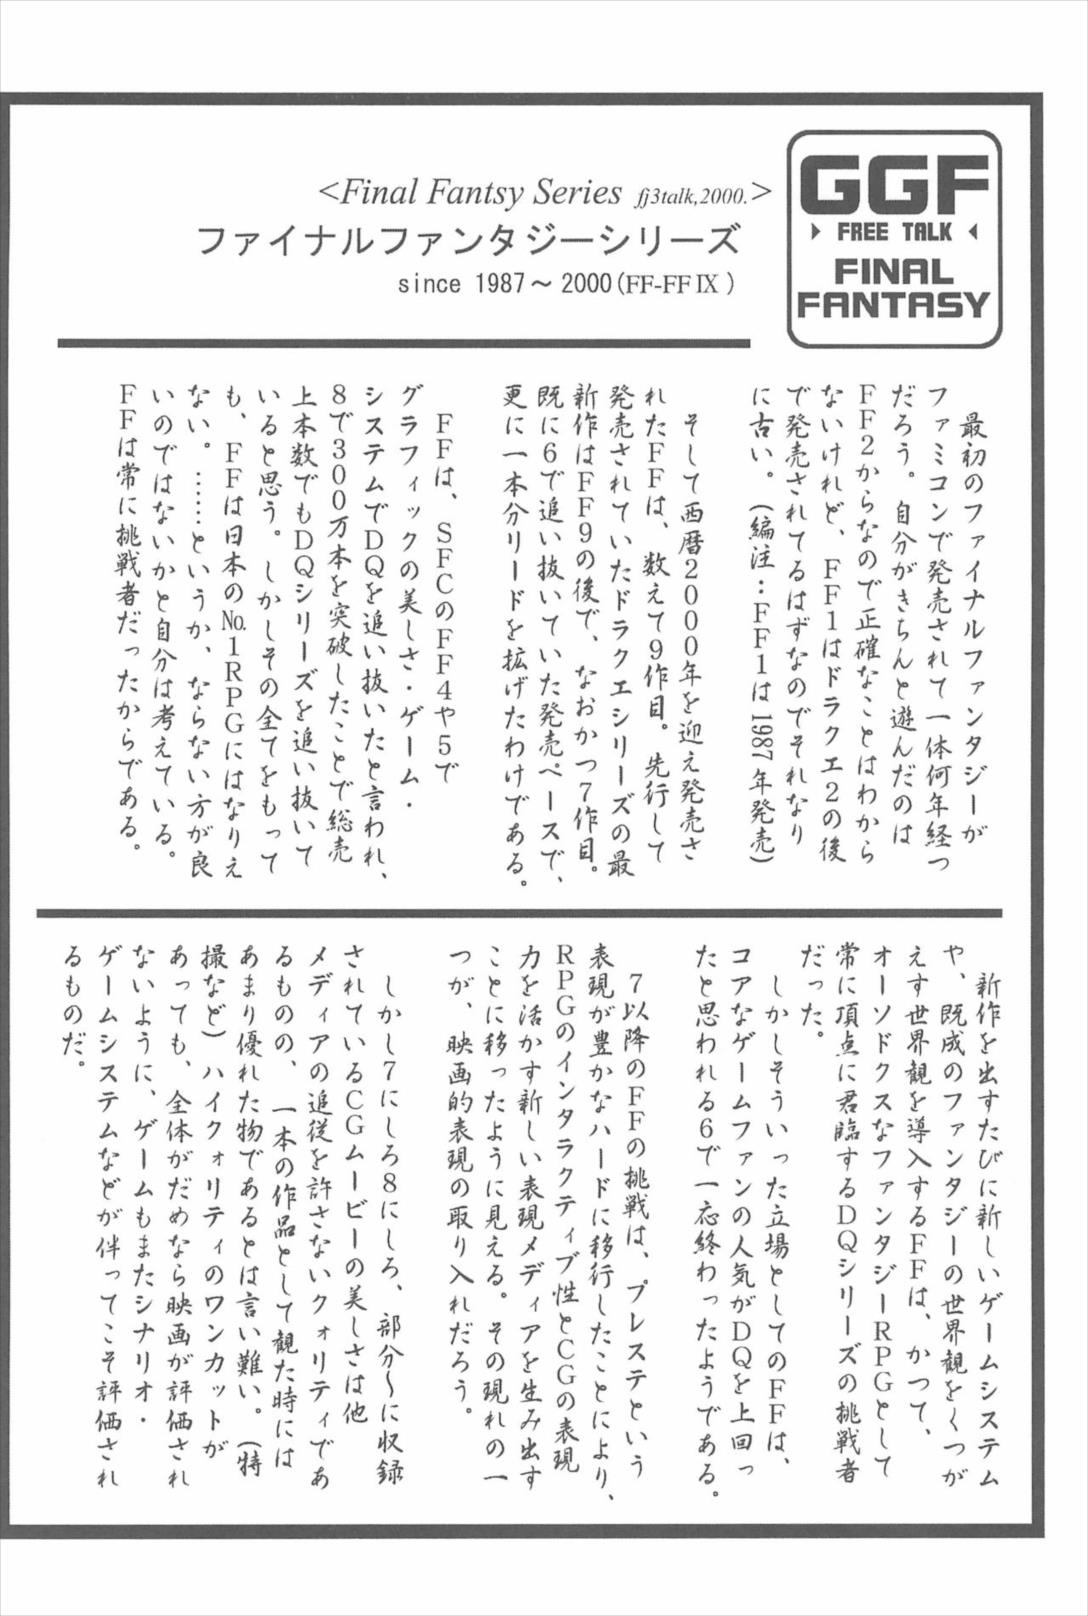 GGF
FREE TALK
FINAL
FANTASY
<Final Fantsy Series fj3talk,2000.>
ファイナルファンタジーシリーズ
since 1987～2000(FF-FFⅨ)
最初のファイナルファンタジーが
ファミコンで発売されて一体何年経つ
だろう。自分がきちんと遊んだのは
FF2からなので正確なことはわから
ないけれど、FF1はドラクエ2の後
で発売されてるはずなのでそれなり
に古い。(編注：FF1は1987年発売)
そして西暦2000年を迎え発売さ
れたFFは、数えて9作目。先行して
発売されていたドラクエシリーズの最
新作はFF9の後で、なおかつ7作目。
既に6で追い抜いていた発売ペースで、
更に一本分リードを拡げたわけである。
FFは、SFCのFF4や5で
グラフィックの美しさ・ゲーム・
システムでDQを追い抜いたと言われ、
8で300万本を突破したことで総売
上本数でもDQシリーズを追い抜いて
いると思う。しかしその全てをもって
も、FFは日本の№1RPGにはなりえ
ない。……というか、ならない方が良
いのではないかと自分は考えている。
FFは常に挑戦者だったからである。
新作を出すたびに新しいゲームシステム
や、既成のファンタジーの世界観をくつが
えす世界観を導入するFFは、かつて、
オーソドクスなファンタジーRPGとして
常に頂点に君臨するDQシリーズの挑戦者
だった。
しかしそういった立場としてのFFは、
コアなゲームファンの人気がDQを上回っ
たと思われる6で一応終わったようである。
7以降のFFの挑戦は、プレステという
表現が豊かなハードに移行したことにより、
RPGのインタラクティブ性とCGの表現
力を活かす新しい表現メディアを生み出す
ことに移ったように見える。その現れの一
つが、映画的表現の取り入れだろう。
しかし7にしろ8にしろ、部分〜に収録
されているCGムービーの美しさは他
メディアの追従を許さないクォリティであ
るものの、一本の作品として観た時には
あまり優れた物であるとは言い難い。(特
撮など)ハイクォリティのワンカットが
あっても、全体がだめなら映画が評価され
ないように、ゲームもまたシナリオ・
ゲームシステムなどが伴ってこそ評価され
るものだ。